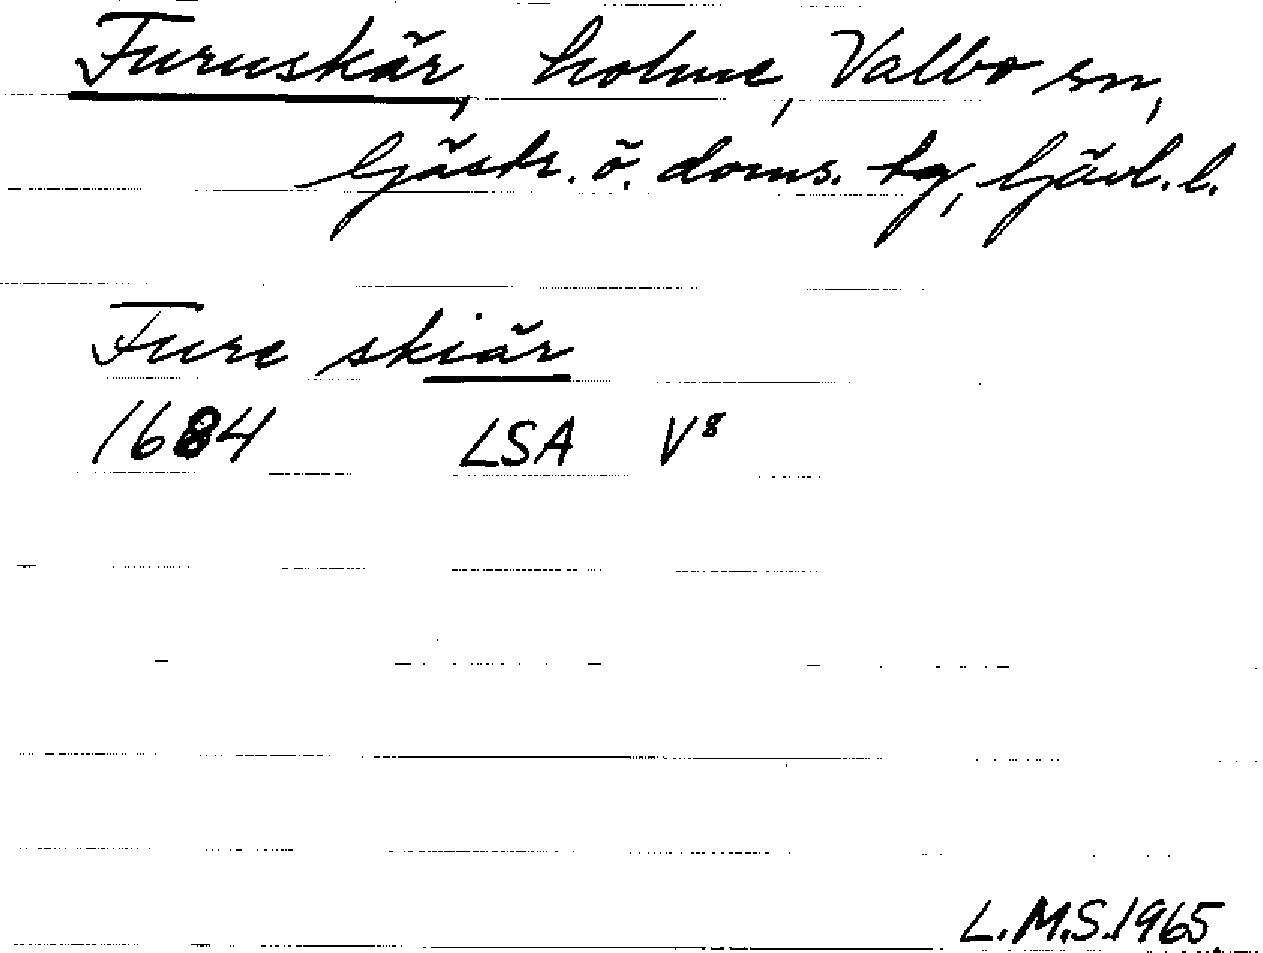 Furuskär, holme, Valbo sn,
Gästr. ö. doms. tg, Gävl. l.
Fure skiär
1684 LSA V⁸
L.M.S.1965.